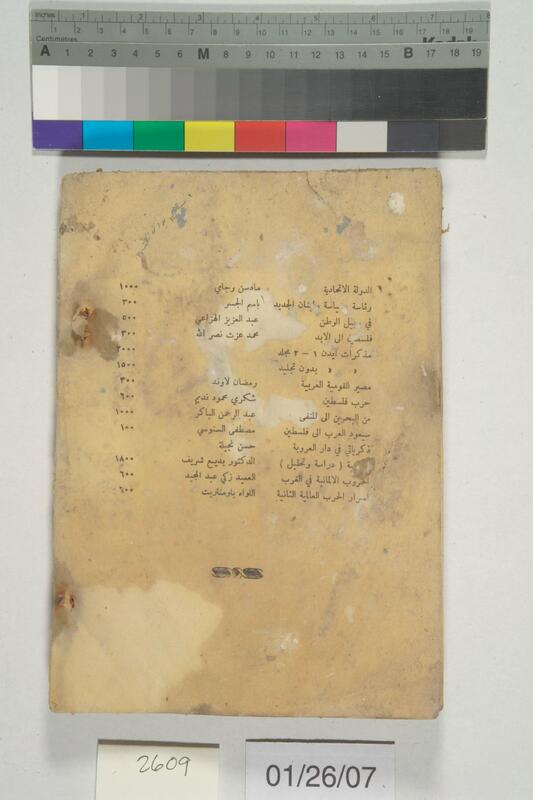 Inches 1 2 3 4 5 6 7 8
Centimetres 1 2 3 4 5 6 7 8 9 10 11 12 13 14 15 16 17 18 19
Kodak
A 1 2 3 4 5 6 M 8 9 10 11 12 13 14 15 B 17 18 19
الدولة الاتحادية مادسن وجامي ١٠٠٠
رئاسة وسياسة ولبنان الجديد باسم الجسر ٣٠٠
في سبيل الوطن عبد العزيز الهزاعي ٥٠٠
فلسطين الى الابد محمد عزت نصر الله ٣٠٠
مذكرات ايدن ١ – ٢ مجلد ٢٠٠٠
» » بدون تجليد ١٥٠٠
مصير القومية العربية رمضان لاوند ٣٠٠
حرب فلسطين شكري محمود نديم ٦٠٠
من البحرين الى المنفى عبد الرحمن الباكر ١٠٠٠
سيعود العرب الى فلسطين مصطفى السنوسي ١٠٠
ذكرياتي في دار العروبة حسن نجيلة
( دراسة وتحليل ) الدكتور بديع شريف ١٨٠٠
الحروب الالمانية في الغرب العميد زكي عبد المجيد ٦٠٠
اسرار الحرب العالمية الثانية اللواء باومنتريت ٦٠٠
2609
01/26/07